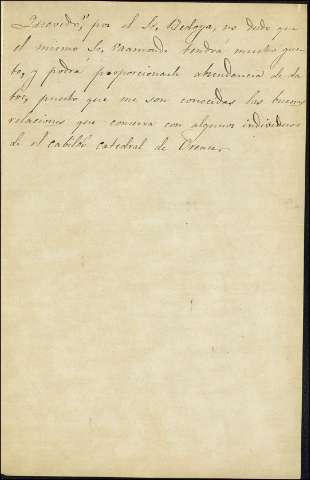 por el Sr. Bedoya, no dudo que
el mismo Sr. tendrá mucho gus-
to, y podrá proporcionarle abundancia de da-
tos, puesto que me son conocidas las buenas
relaciones que conserva con algunos individuos
de el cabildo catedral de Orense.